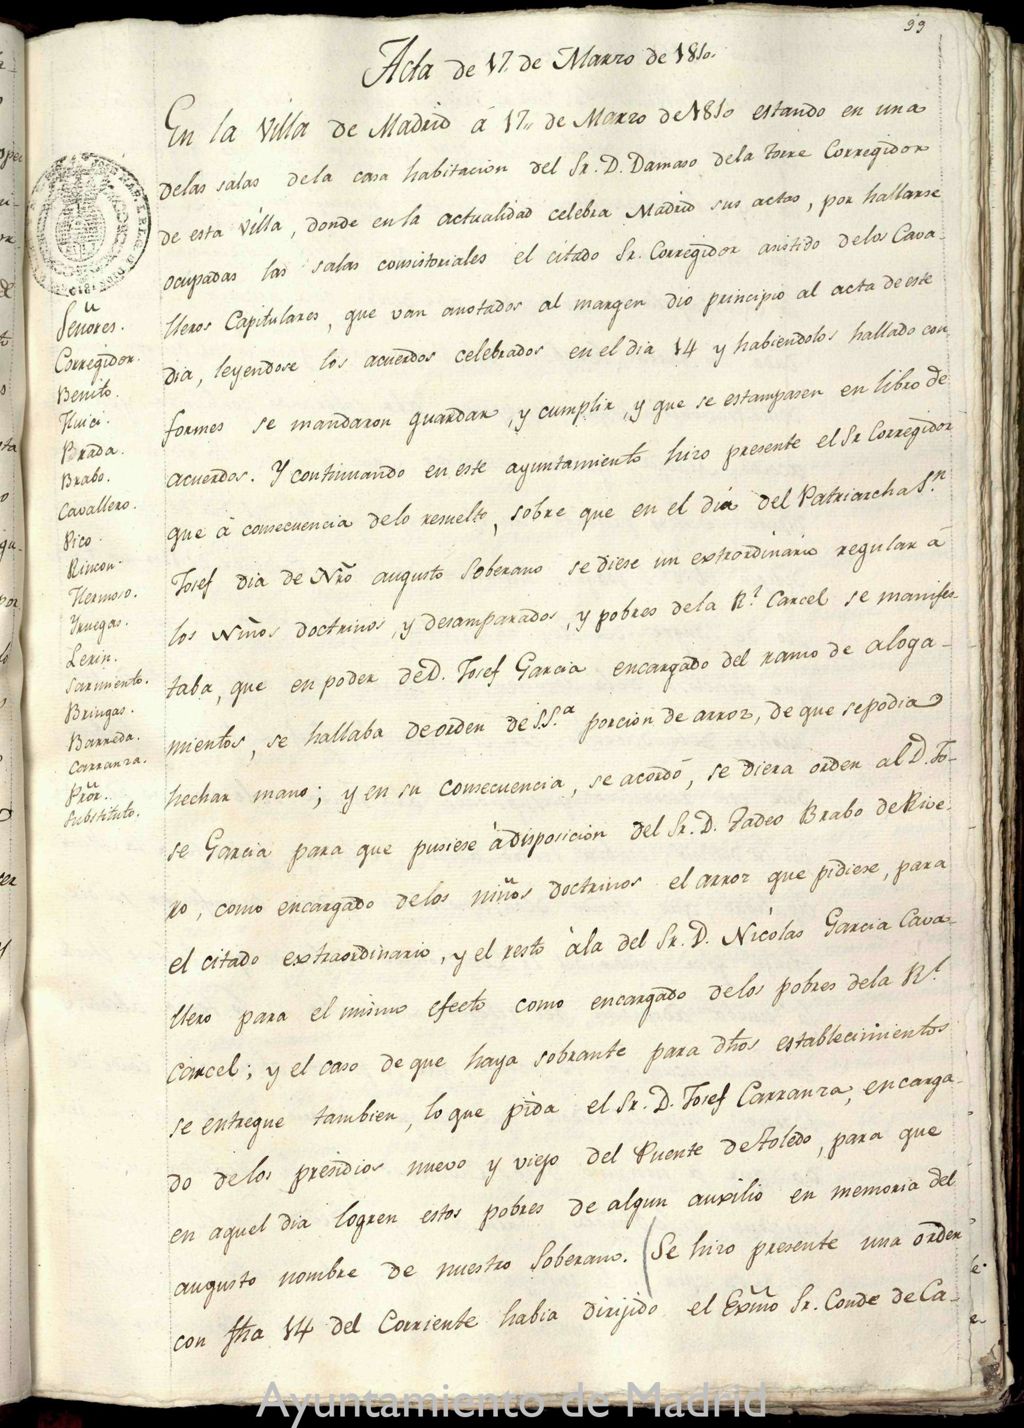 99
Acta de 17. de Marzo de 1810.
En la Villa de Madrid á 17,, de Marzo de 1810 estando en una
delas salas dela casa habitacion del Sr. D. Damaso dela Torre Corregidor
de esta Villa, donde en la actualidad celebra Madrid sus actas, por hallarse
ocupadas las salas consistoriales el citado Sr. Corregidor asistido delos Cava-
lleros Capitulares, que van anotados al margen dio principio al acta de este
dia, leyendose los acuerdos celebrados en el dia 14 y habiendolos hallado con-
formes se mandaron guardar, y cumplir, y que se estampasen en libro de
acuerdos. Y continuando en este ayuntamiento hizo presente el Sr Corregidor
que á consecuencia delo resuelto, sobre que en el dia del Patriarcha Sn
Josef dia de Nro augusto Soberano se diese un extraordinario regular á
los Niños doctrinos, y desamparados, y pobres dela Rl. Carcel se manifes-
taba, que en poder de D. Josef Garcia encargado del ramo de aloga-
mientos, se hallaba de orden de S.S.a porcion de arroz, de que se podia
hechar mano; y en su consecuencia, se acordó, se diera orden al D. Jo-
se Garcia para que pusiese á disposicion del Sr. D. Tadeo Brabo de Rive-
ro, como encargado delos niños doctrinos el arroz que pidiese, para
el citado extraordinario, y el resto á la del Sr. D. Nicolas Garcia Cava-
llero para el mismo efecto como encargado delos pobres dela Rl.
Carcel; y el caso de que haya sobrante para dhos establecimientos
se entregue tambien, lo que pida el Sr. D. Josef Carranza, encarga-
do delos presidios nuevo y viejo del Puente de Toledo, para que
en aquel dia logren estos pobres de algun auxilio en memoria del
augusto nombre de nuestro Soberano. (Se hizo presente una orden
con fha 14 del Corriente habia dirijido el Exmo Sr. Conde de Ca-
Señores.
Corregidor.
Benito.
Huici.
Prada.
Brabo.
Cavallero.
Pico.
Rincon.
Hermoso.
Yruegas.
Lerin.
Sarmiento.
Bringas.
Barreda.
Carranza.
Pror.
Substituto.
Ayuntamiento de Madrid